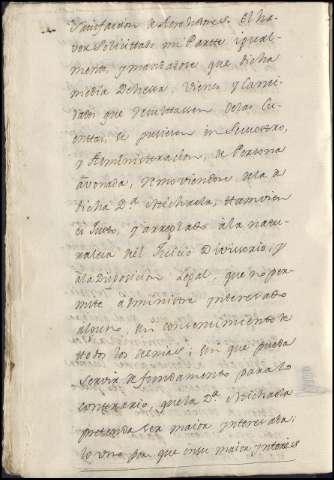 Vnisfaccion de Acrehedores. El ha-
ver solicittado mi Partte igual-
mentte, y mandadose que dicha
media Dehessa, vienes y Canti-
dades que resulttassen de las Cu-
enttas, se pusiesen en Sequestro,
y Administtracion, de Persona
avonada, removiendose de la de
dicha D.ª Michaela, ttamvien
es Justo, y arreglado à la natu-
raleza del Juicio Divissorio, y
à la Disposicion Legal, que no per-
mitte administtre interesado
alguno, sin consentimientto de
ttodos los demas; sin que pueda
servir de fundamento para lo
contrario, que la D.ª Michaela
pretenda ser maior interesada,
lo uno por que en su maior interes